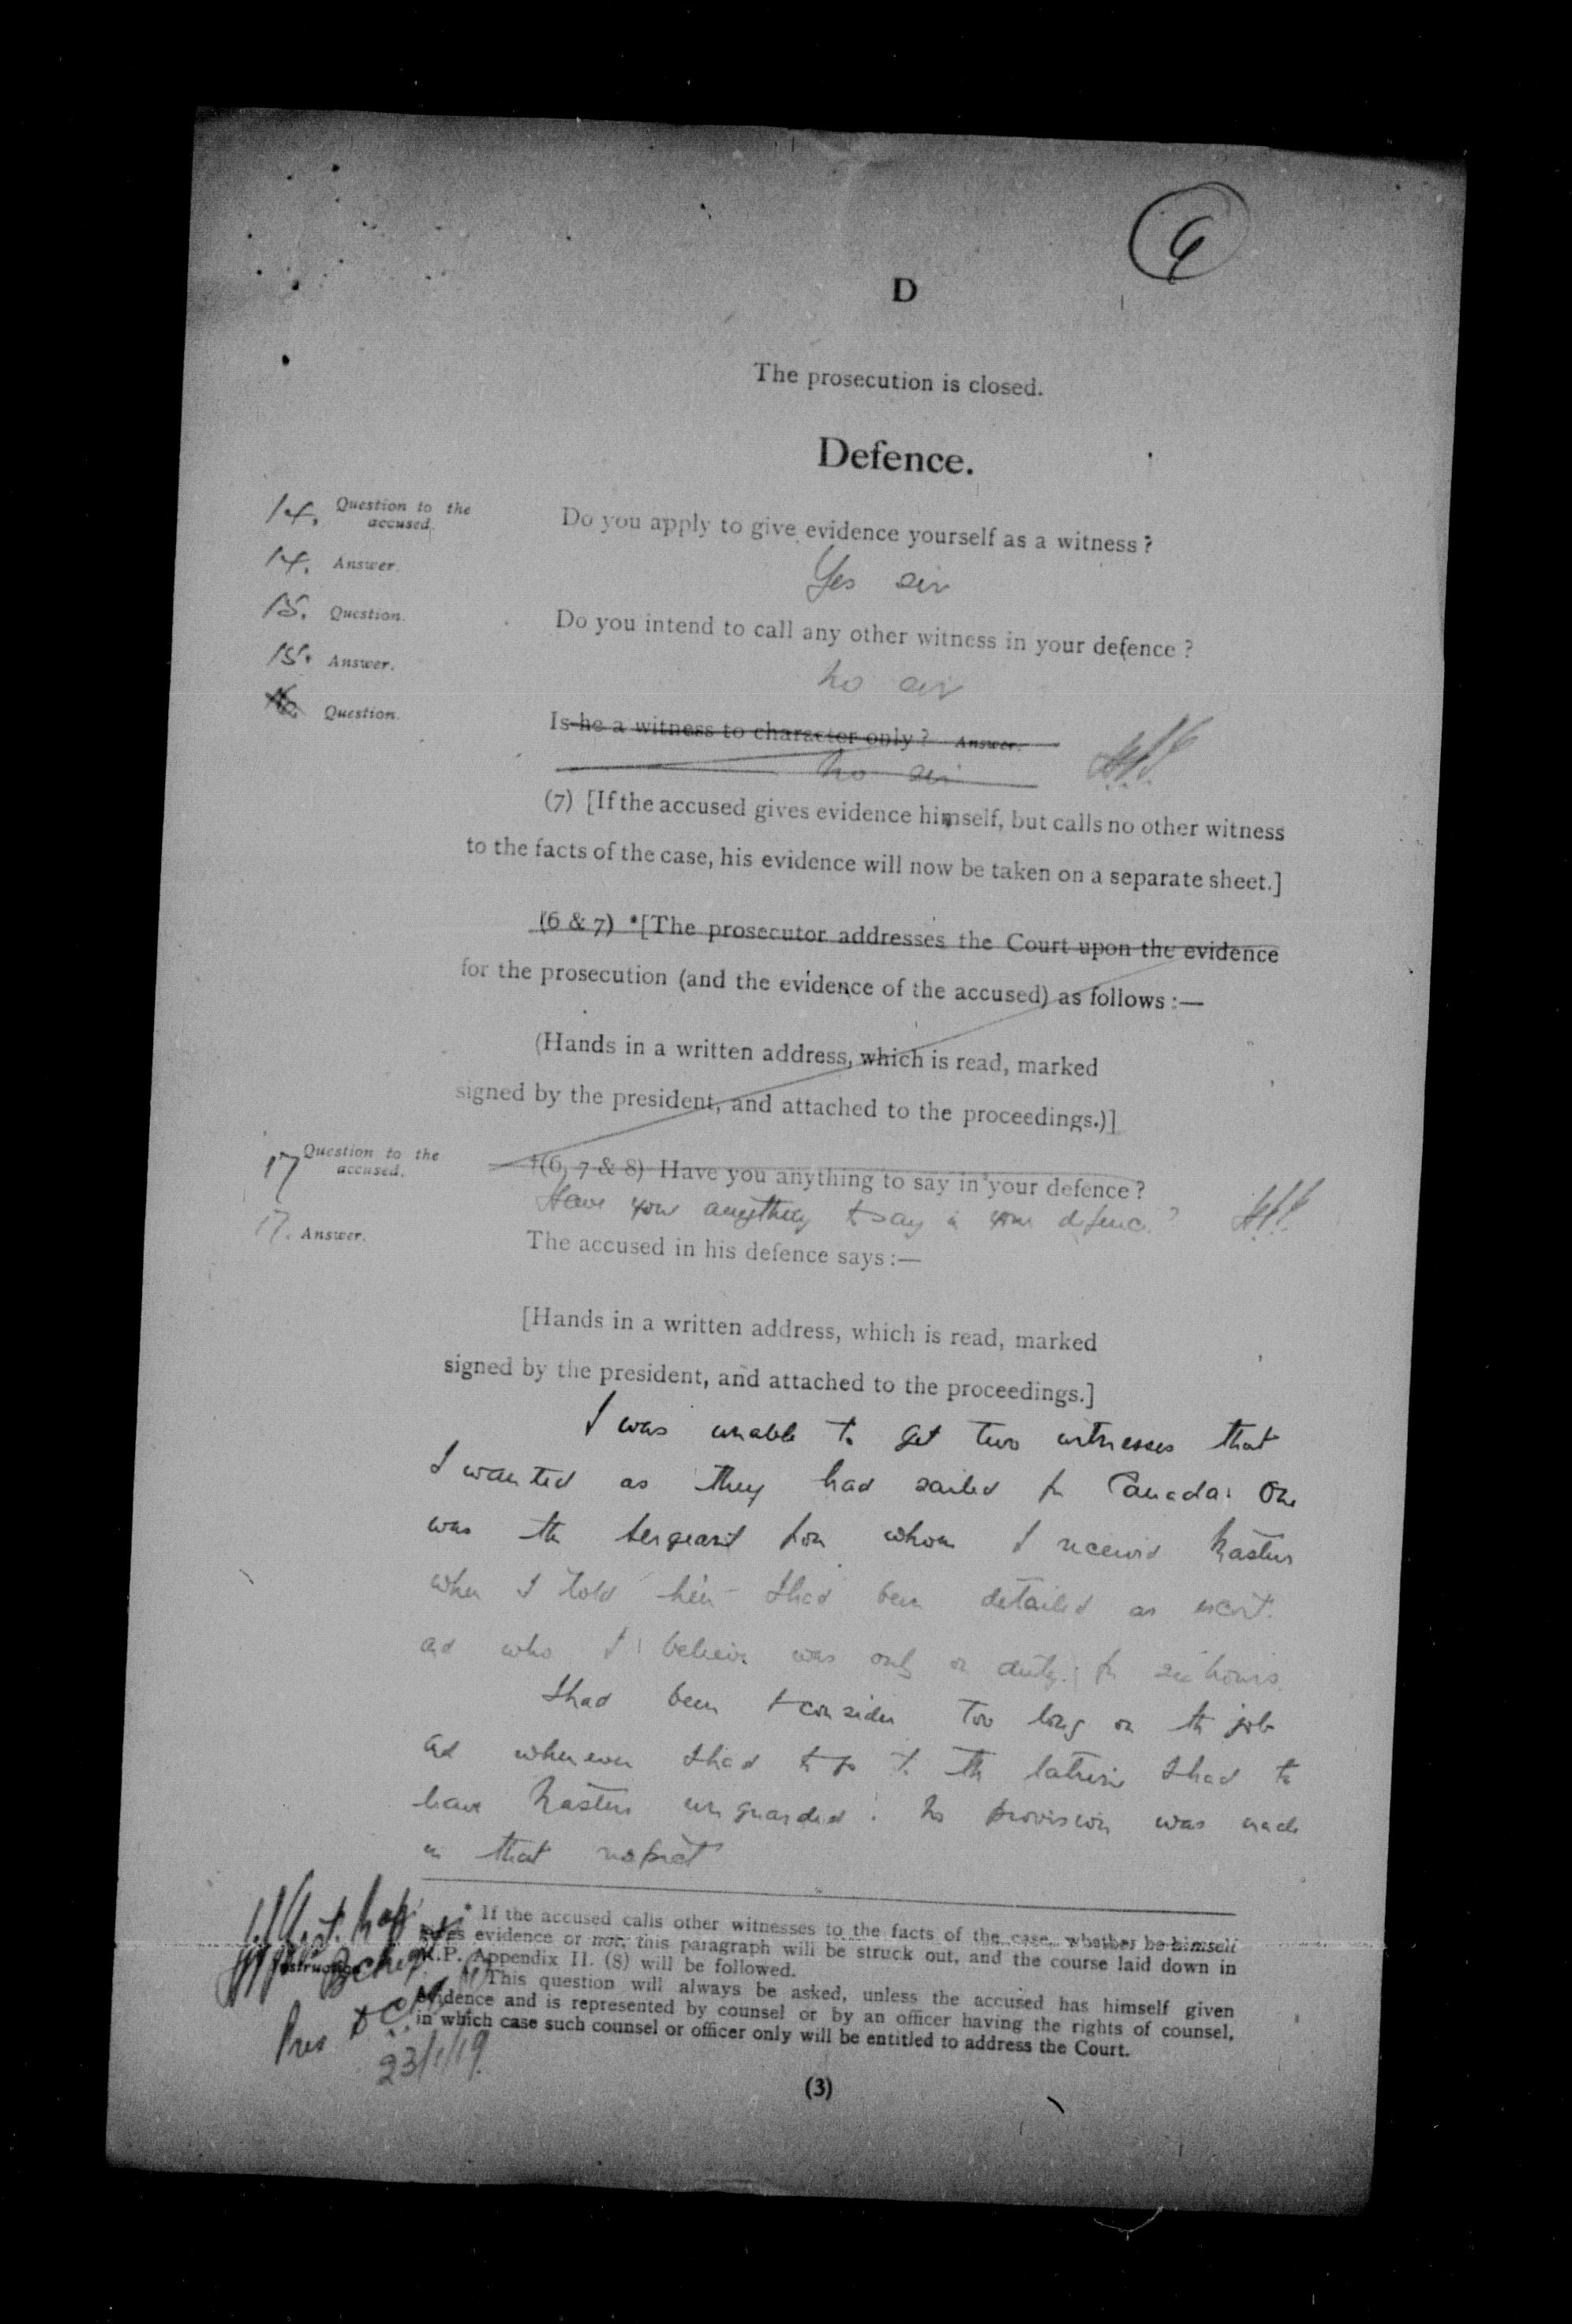 D
The prosecution is closed.
Defence.
14. Question to the accused. Do you apply to give evidence yourself as a witness?
14. Answer. Yes sir
15. Question. Do you intend to call any other witness in your defence?
15. Answer. No sir
16. Question. Is he a witness to character only? Answer.
No sir
(7) [If the accused gives evidence himself, but calls no other witness
to the facts of the case, his evidence will now be taken on a separate sheet.]
(6 & 7) *[The prosecutor addresses the Court upon the evidence
for the prosecution (and the evidence of the accused) as follows:—
(Hands in a written address, which is read, marked
signed by the president, and attached to the proceedings.)]
17 Question to the accused. †(6, 7 & 8) Have you anything to say in your defence?
Have you anything to say in your defence?
17. Answer. The accused in his defence says:—
[Hands in a written address, which is read, marked
signed by the president, and attached to the proceedings.]
I was unable to get two witnesses that
I wanted as they had sailed for Canada. One
was the Sergeant from whom I received Masters
when I told him I had been detailed as escort.
and who I believe was only on duty for six hours.
I had been I consider too long on the job
and whenever I had to go to the latrine I had to
leave Masters unguarded. No provision was made
in that respect
* If the accused calls other witnesses to the facts of the case, whether he himself
gives evidence or not, this paragraph will be struck out, and the course laid down in
R.P. Appendix II. (8) will be followed.
This question will always be asked, unless the accused has himself given
evidence and is represented by counsel or by an officer having the rights of counsel,
in which case such counsel or officer only will be entitled to address the Court.
Pres
23/1/19
(3)